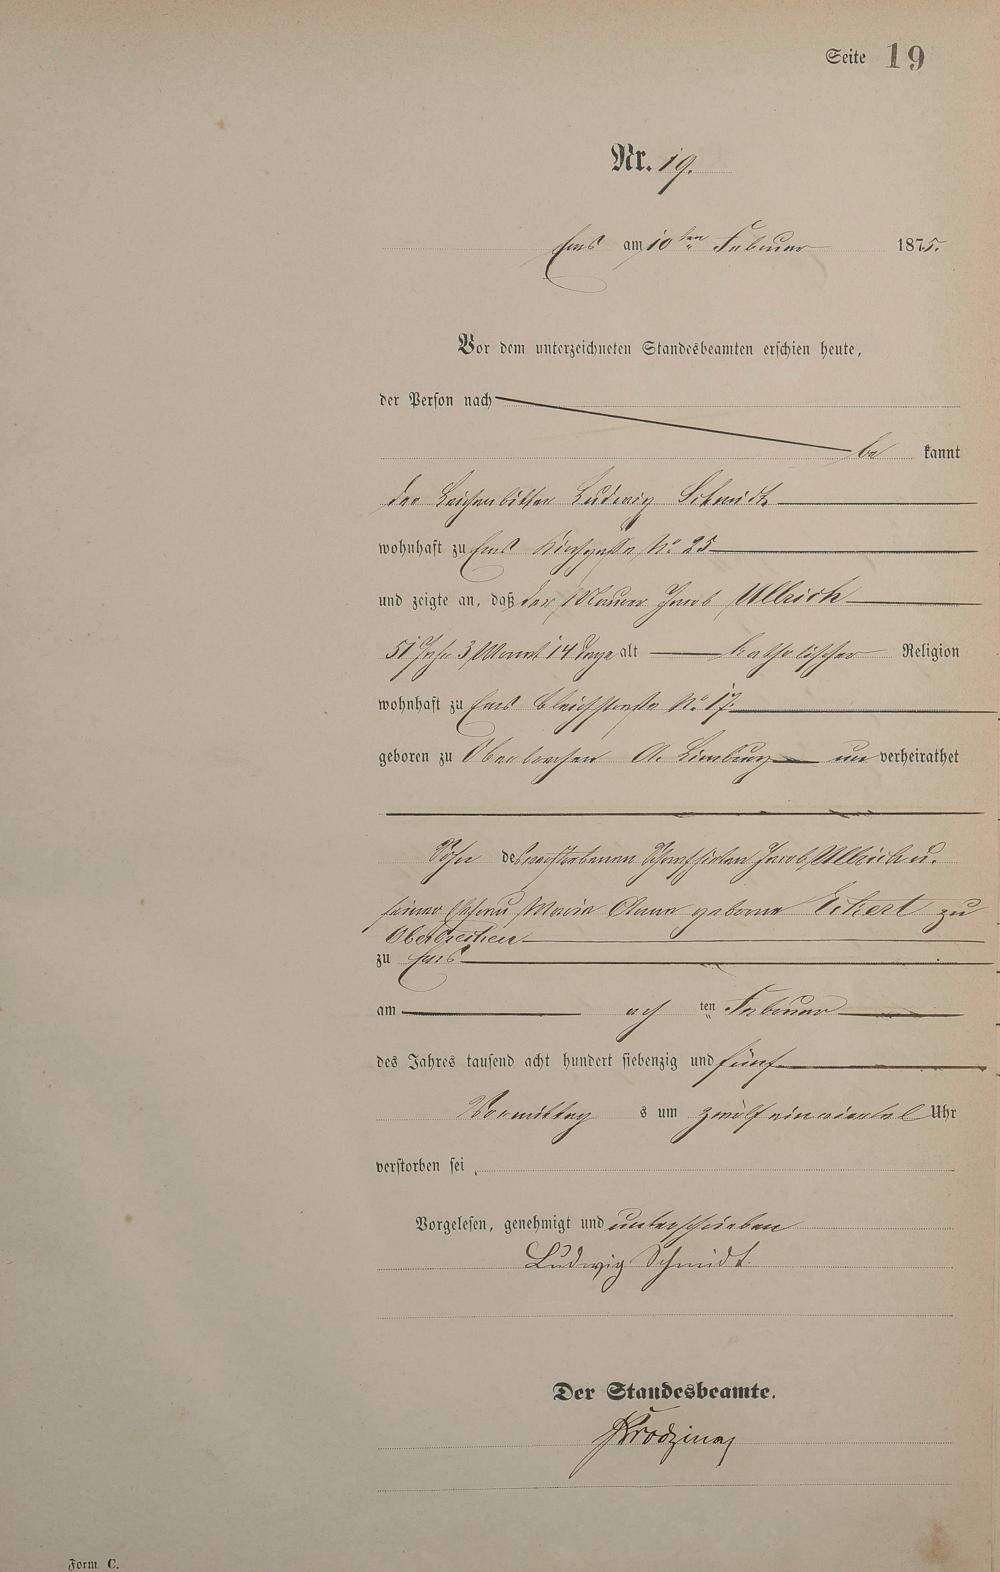 Seite 19
Nr. 19.
Ems am 10ten Februar 1875.
Vor dem unterzeichneten Standesbeamten erschien heute,
der Person nach
be kannt
der Leichenbitter Ludwig Schmidt
wohnhaft zu Ems Kirchgasse No 25
und zeigte an, daß der Maurer Jacob Ullrich
51 Jahr 3 Monat 14 Tage alt katholischer Religion
wohnhaft zu Ems Bleichstraße No 17.
geboren zu Oberbrechen A. Limburg un verheirathet
Sohn des verstorbenen Jacob Ullrich u.
seiner Ehefrau Maria Anna geborne Eckert zu
Oberbrechen
zu Ems
am acht ten Februar
des Jahres tausend acht hundert siebenzig und fünf
Vormittag s um zwölf ein viertel Uhr
verstorben sei.
Vorgelesen, genehmigt und unterschrieben
Ludwig Schmidt.
Der Standesbeamte.
Form C.